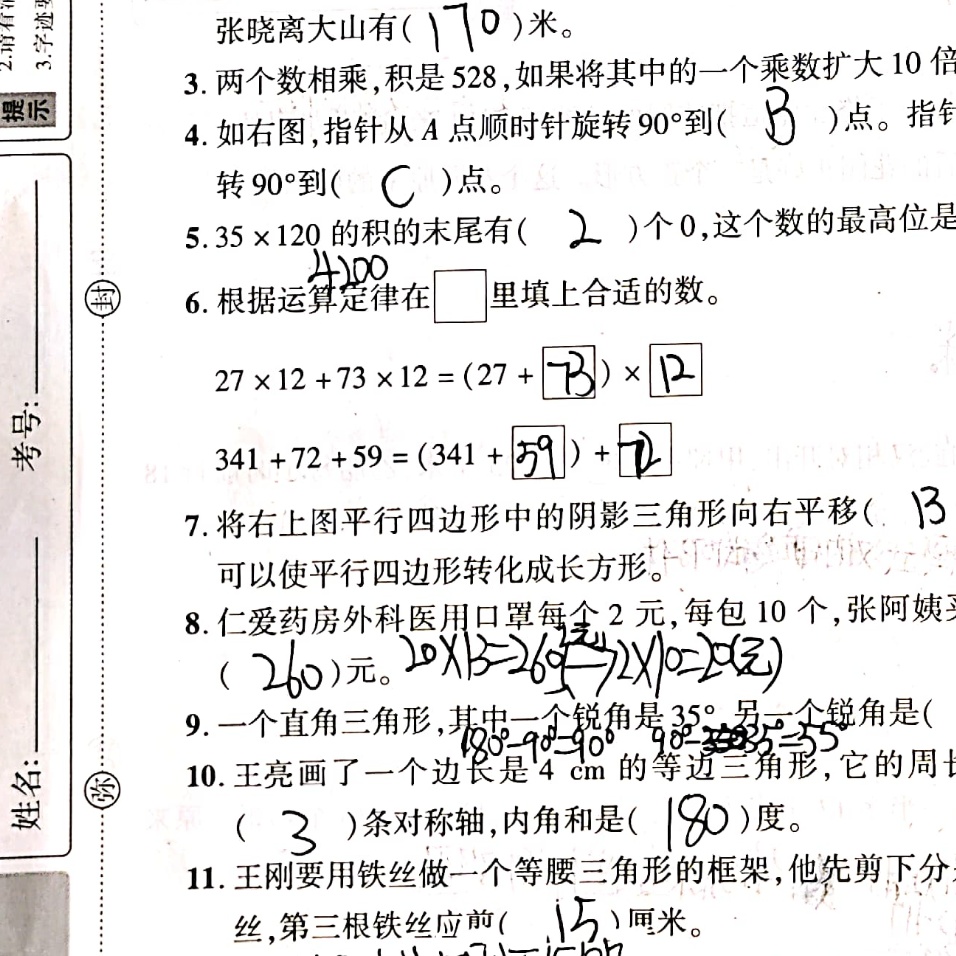 张晓离大山有( 170 )米。
3. 两个数相乘,积是 528,如果将其中的一个乘数扩大 10 倍
4. 如右图,指针从 A 点顺时针旋转 90°到( B )点。指针
转 90°到( C )点。
5. 35 × 120 的积的末尾有( 2 )个 0,这个数的最高位是
4200
6. 根据运算定律在□里填上合适的数。
27 × 12 + 73 × 12 = (27 + 73 ) × 12
341 + 72 + 59 = (341 + 59 ) + 72
7. 将右上图平行四边形中的阴影三角形向右平移( 13
可以使平行四边形转化成长方形。
8. 仁爱药房外科医用口罩每个 2 元,每包 10 个,张阿姨买
( 260 )元。 20×13=260(元) 2×10=20(元)
9. 一个直角三角形,其中一个锐角是 35°,另一个锐角是(
180°-90°=90° 90°-35°=55°
10. 王亮画了一个边长是 4 cm 的等边三角形,它的周长
( 3 )条对称轴,内角和是( 180 )度。
11. 王刚要用铁丝做一个等腰三角形的框架,他先剪下分
丝,第三根铁丝应剪( 15 )厘米。
提示
3.字迹
封
考号:
姓名:
弥